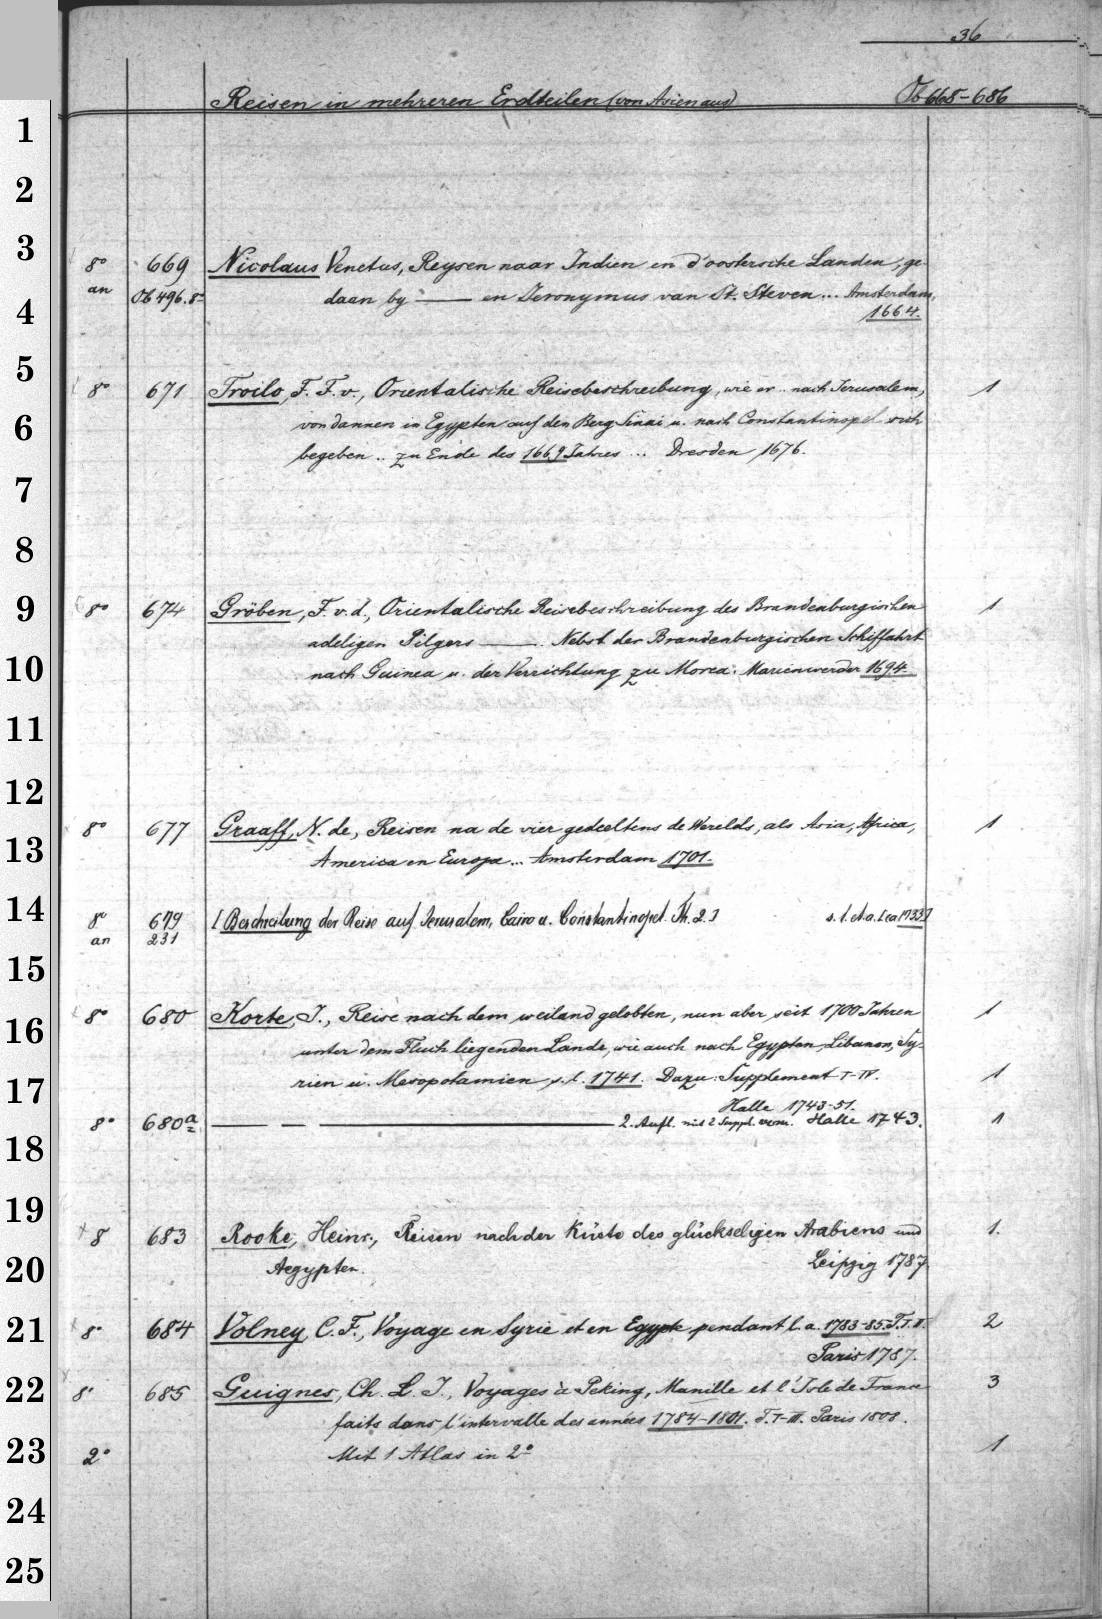 36
Reisen in mehreren Erdteilen (von Asien aus) Ob 668-686
1
2
3
8° 669 Nicolaus Venetus, Reysen naar Indien en d'oostersche Landen, ge-
an Ob 496.8° daan by —— en Jeronymus van St. Steven... Amsterdam,
4
1664.
5
8° 671 Troilo, F. F. v., Orientalische Reisebeschreibung, wie er .. nach Jerusalem, 1
6
von dannen in Egypten auf den Berg Sinai u. nach Constantinopel sich
begeben .. zu Ende des 1669 Jahres ... Dresden 1676.
7
8
9
8° 674 Gröben, F. v. d., Orientalische Reisebeschreibung des Brandenburgischen 1
adeligen Pilgers ——. Nebst der Brandenburgischen Schiffahrt
10
nach Guinea u. der Verrichtung zu Morea. Marienwerder 1694.
11
12
8° 677 Graaff, N. de, Reisen na de vier gedeeltens de Werelds, als Asia, Africa, 1
13
America en Europa... Amsterdam 1701.
14
8° 679 [Beschreibung der Reise auf Jerusalem, Cairo u. Constantinopel. Th. 2.] s. l. et a. [ca 1733]
an 231
15
8° 680 Korte, J., Reise nach dem weiland gelobten, nun aber seit 1700 Jahren 1
16
unter dem Fluch liegenden Lande, wie auch nach Egypten, Libanon, Sy-
rien u. Mesopotamien s. l. 1741. Dazu: Supplement I-IV. 1
17
Halle 1743-51.
8° 680a —— — —— 2. Aufl. mit 2 Suppl. verm. Halle 1743. 1
18
19
8 683 Rooke, Heinr., Reisen nach der Küste des glückseligen Arabiens und 1.
20
Aegypten. Leipzig 1787.
21
8° 684 Volney, C. F., Voyage en Syrie et en Egypte pendant l. a. 1783-85. T. I. II. 2
Paris 1787.
22
8° 685 Guignes, Ch. L. J., Voyages à Peking, Manille et l'Isle de France 3
faits dans l'intervalle des années 1784-1801. T. I-III. Paris 1808.
23
2° Mit 1 Atlas in 2° 1
24
25